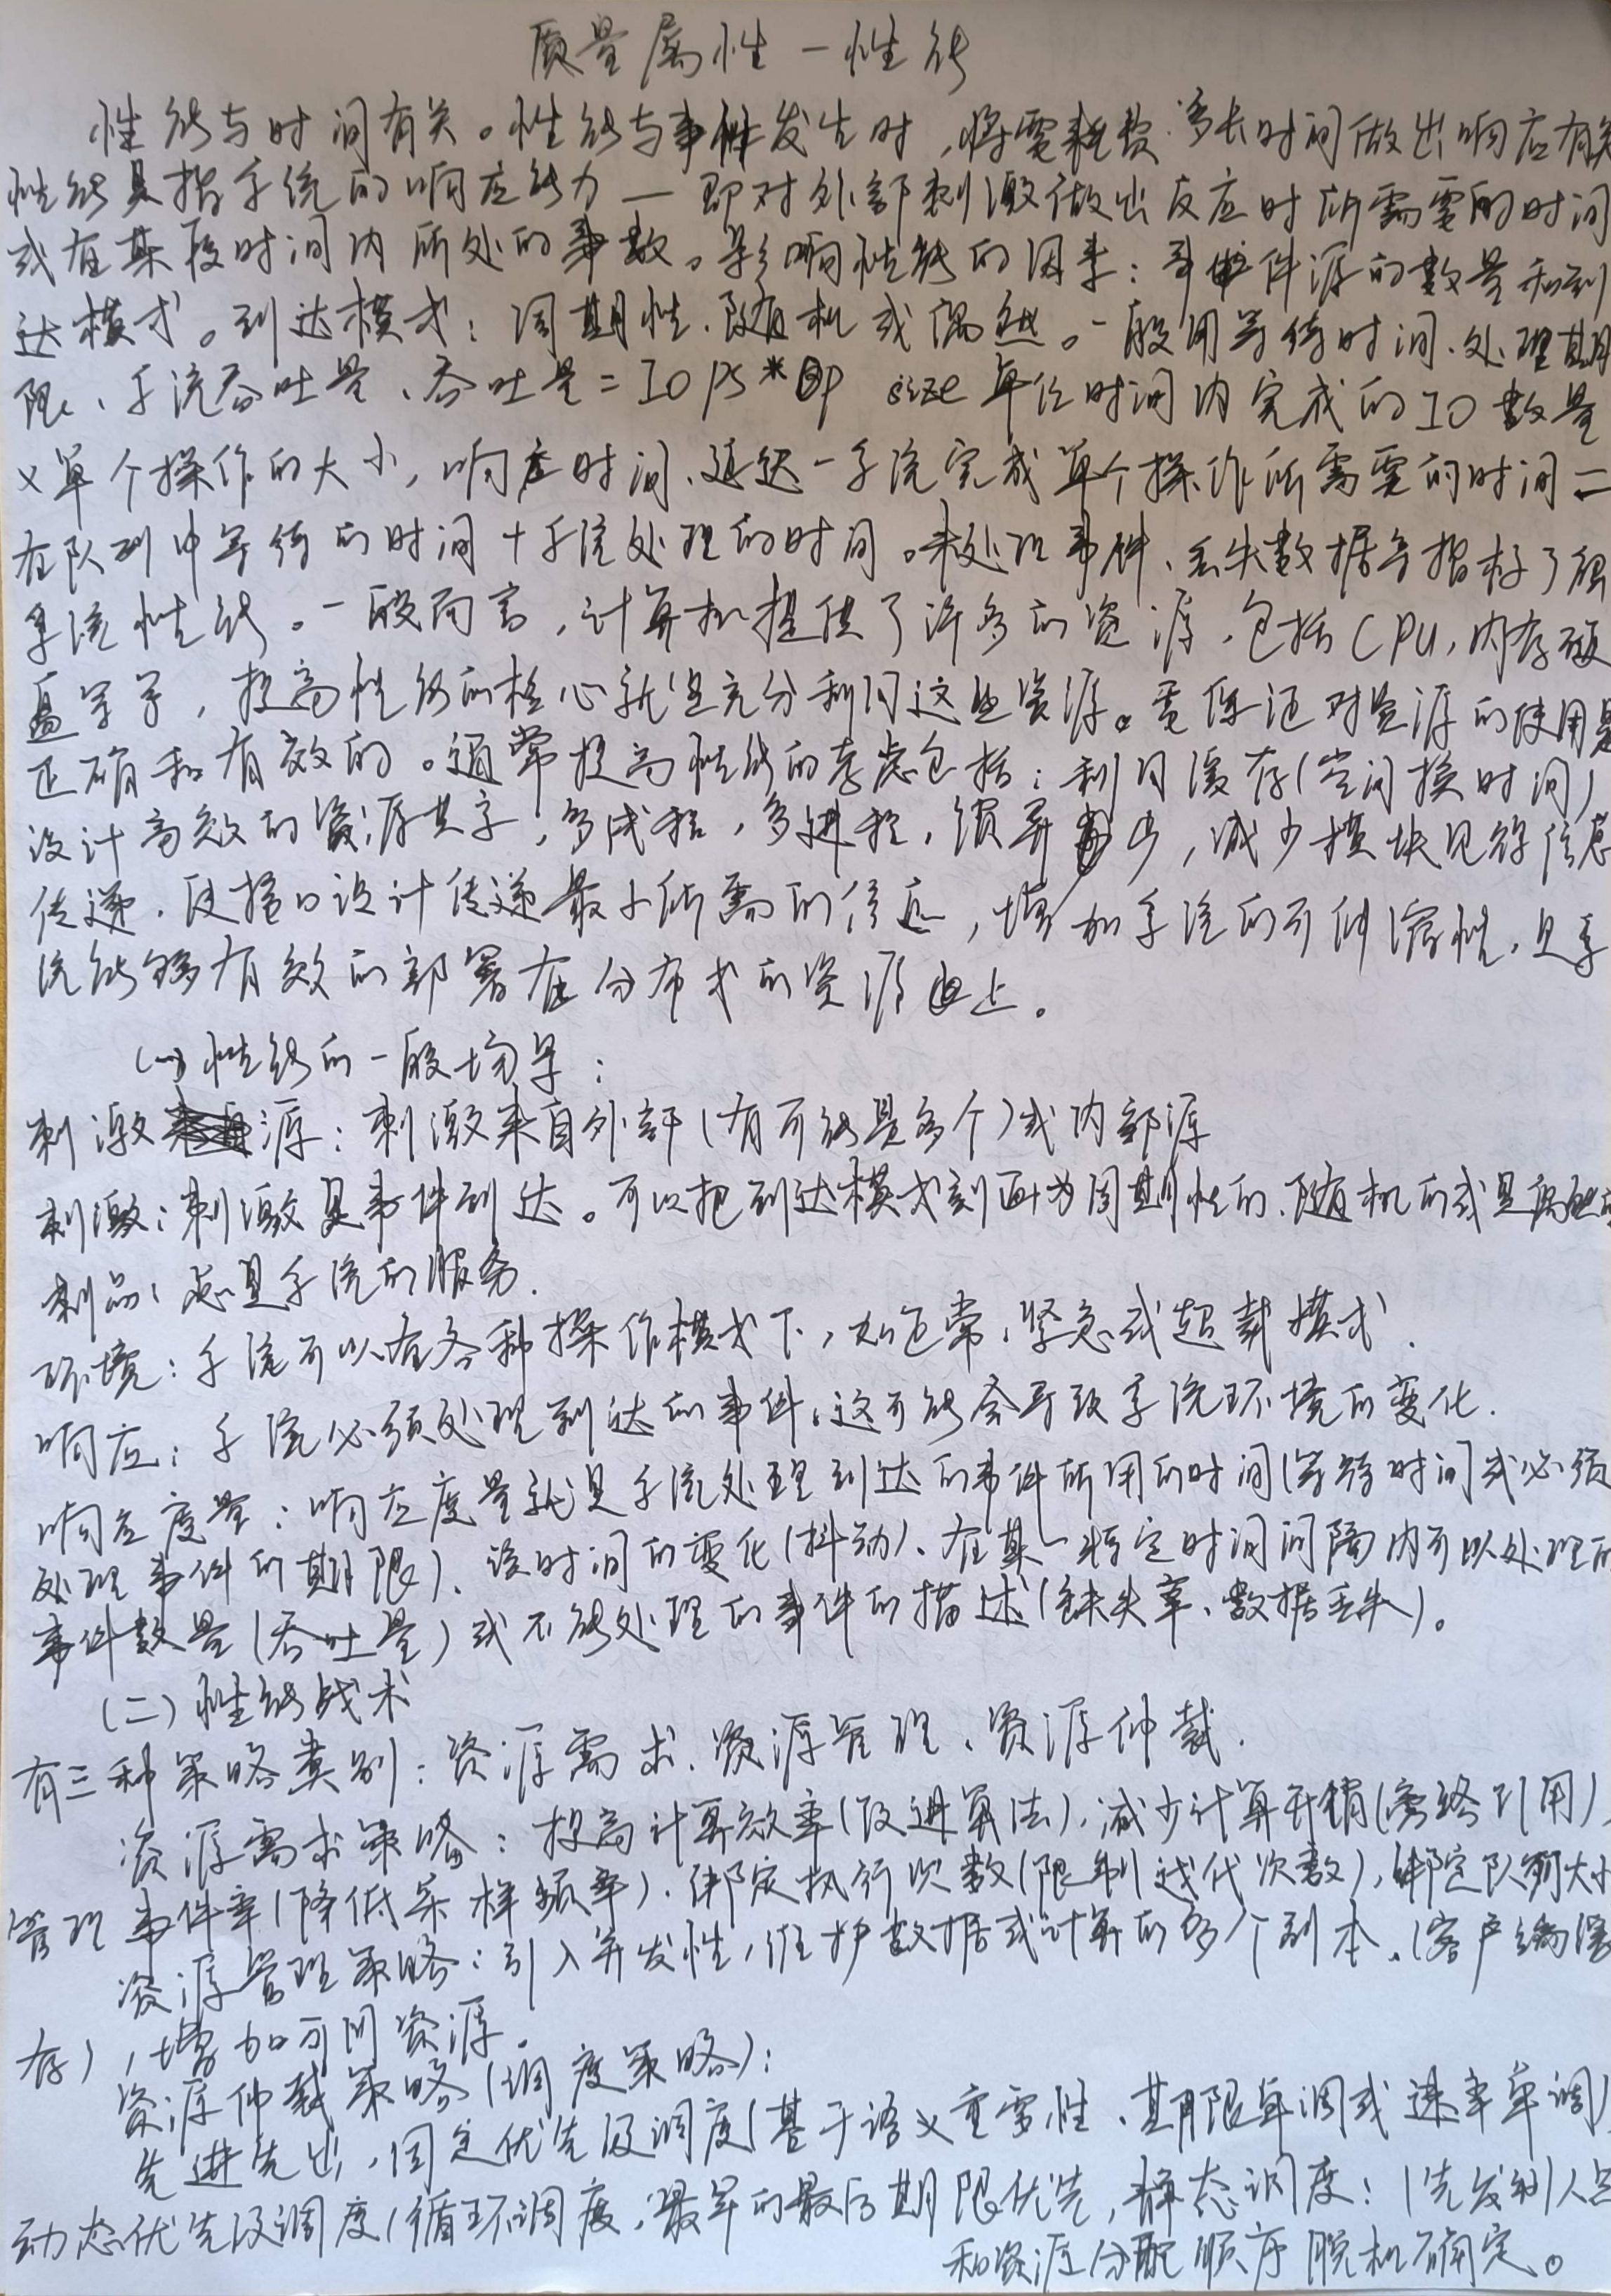 质量属性一性能
性能与时间有关。性能与事件发生时,将需耗费多长时间做出响应有关
性能是指系统的响应能力 — 即对外部刺激做出反应时所需要的时间
或在某段时间内所处的事数。影响性能的因素:事件源的数量和到
达模式。到达模式:周期性、随机或偶然。一般用等待时间、处理期
限、系统吞吐量、吞吐量=IOPS*OP size 单位时间内完成的IO数量
×单个操作的大小,响应时间、延迟一系统完成单个操作所需要的时间=
在队列中等待的时间+系统处理的时间。未处理事件、丢失数据等指标了解
系统性能。一般而言,计算机提供了许多的资源,包括CPU,内存硬
盘等等,提高性能的核心就是充分利用这些资源。需保证对资源的使用是
正确和有效的。通常提高性能的考虑包括:利用缓存(空间换时间)
设计高效的资源共享,多线程,多进程,锁异步,减少模块见等信息
传递,使接口设计传递最小所需的信息,增加系统的可伸缩性,且系
统能够有效的部署在分布式的资源上。
(一)性能的一般场景:
刺激源:刺激来自外部(有可能是多个)或内部源
刺激:刺激是事件到达。可以把到达模式刻画为周期性的、随机的或是偶然的
制品:总是系统的服务.
环境:系统可以在各种操作模式下,如正常,紧急或超载模式.
响应:系统必须处理到达的事件。这可能会导致系统环境的变化.
响应度量:响应度量就是系统处理到达的事件所用的时间(等待时间或必须
处理事件的期限)、该时间的变化(抖动)、在某一特定时间间隔内可以处理的
事件数量(吞吐量)或不能处理的事件的描述(缺失率、数据丢失)。
(二)性能战术
有三种策略类别:资源需求、资源管理、资源仲裁.
资源需求策略:提高计算效率(改进算法),减少计算开销(
管理事件率(降低采样频率),绑定执行次数(限制迭代次数),绑定队列大小
资源管理策略:引入并发性,维护数据或计算的多个副本。(客户端缓
存),增加可用资源。
资源仲裁策略(调度策略):
先进先出,固定优先级调度(基于语义重要性、期限单调或速率单调)
动态优先级调度(循环调度,最早的最后期限优先,静态调度:
和资源分配顺序脱机确定。